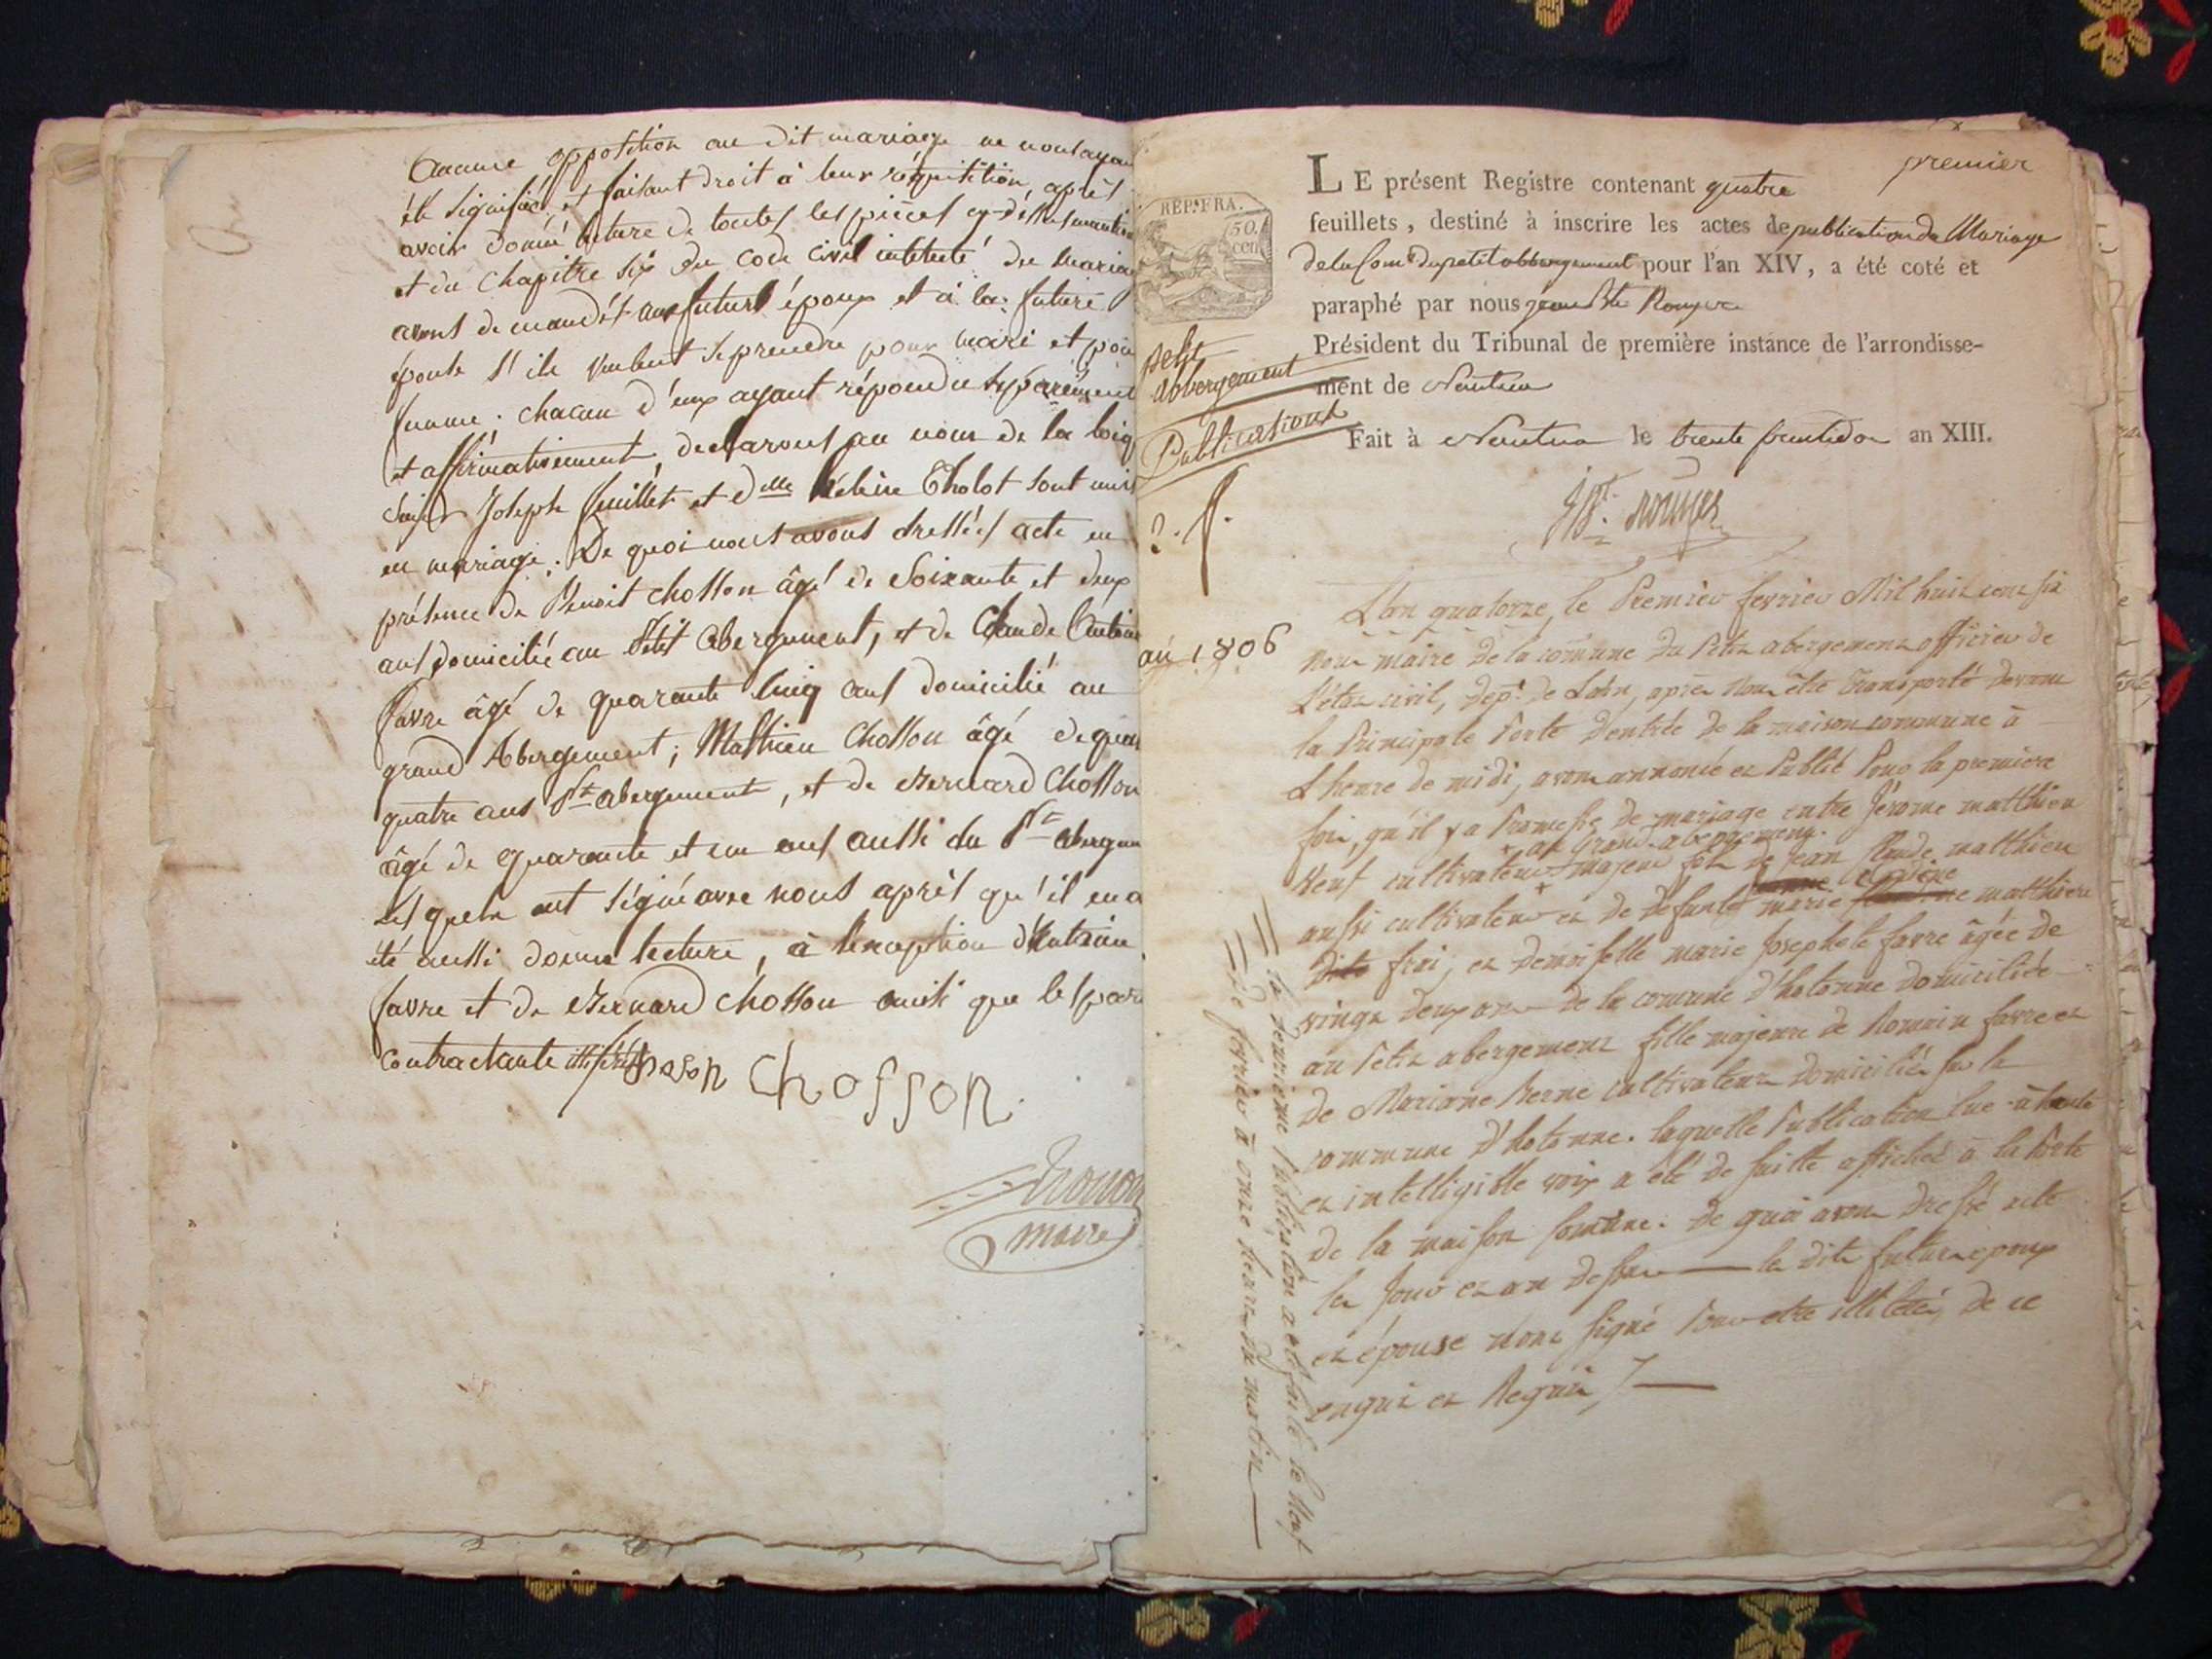 Aucune opposition au dit mariage ne nous ayan
été signifiée, et faisant droit à leur réquisition, après
avoir donné lecture de toutes les pièces cy-dessus mentio
et du chapitre six du code civil intitulé du maria
avons demandés aux futurs époux et à la future
épouse s'ils veulent se prendre pour mari et pour
femme; chacun d'eux ayant répondu séparément
et affirmativement, declarons au nom de la loi q
Joseph feuillet et dlle Tholot sont unis
en mariage. De quoi nous avons dressés acte en
présence de Benoit Chosson âgé de Soixante et deux
ans domicilié au Petit Abergement, et de Claude Antoine
favre âgé de quarante cinq ans domicilié au
grand Abergement; Mathieu Chosson âgé de quar
quatre ans Pt abergement, et de Bernard Chosson
âgé de quarante et un ans aussi du Pt abergem
Lesquels ont signé avec nous après qu'il en a
été aussi donné lecture, à l'exception d'Antoine
favre et de Bernard Chosson ainsi que les par
contractante illiterés
Chosson
maire
premier
REP. FRA.
50
cen
LE présent Registre contenant quatre
feuillets, destiné à inscrire les actes de publication de Mariage
de la Come du petit abbergement pour l'an XIV, a été coté et
paraphé par nous jean Bte Rouyer
Président du Tribunal de première instance de l'arrondisse-
ment de Nantua
Fait à Nantua le trente fructidor an XIII.
Jbt. Rouyer
petit
abbergement
Publications
an 1806
L'an quatorze, le Premier fevrier Mil huit cent six
nous maire de la comune du Petit abergement officier de
L'état civil, dept. de Lain, après nous être Transporté devant
la Principale Porte dentrée de la maison commune à
L'heure de midi, avons annoncé et Publié Pour la premiere
fois, qu'il y a Promesse de mariage entre Jérome matthieu
+ au Grand abergement.
Neuf cultivateur + majeur fils de jean Claude matthieu
aussi cultivateur et de defunte marie matthieu
dite froi, et demoiselle marie Josephete favre âgée de
vingt deux ans de la comune d'hotonne domiciliée
au Petit abergement fille majeure de Romain favre et
de Mariane Berne cultivateurs domiciliés sur la
commune d'hotonne. laquelle Publication lue à haute
et intelligible voix a été de suitte affichée à la Porte
de la maison comune. De quoi avons dressé acte
les jour et an dessus — les dits futurs epoux
et épouse n'ont signé Pour etre illiterés, de ce
enquis et Requis, —
= la deuxieme Publication a eté faite le Neuf
= de fevrier à onze heure du matin —